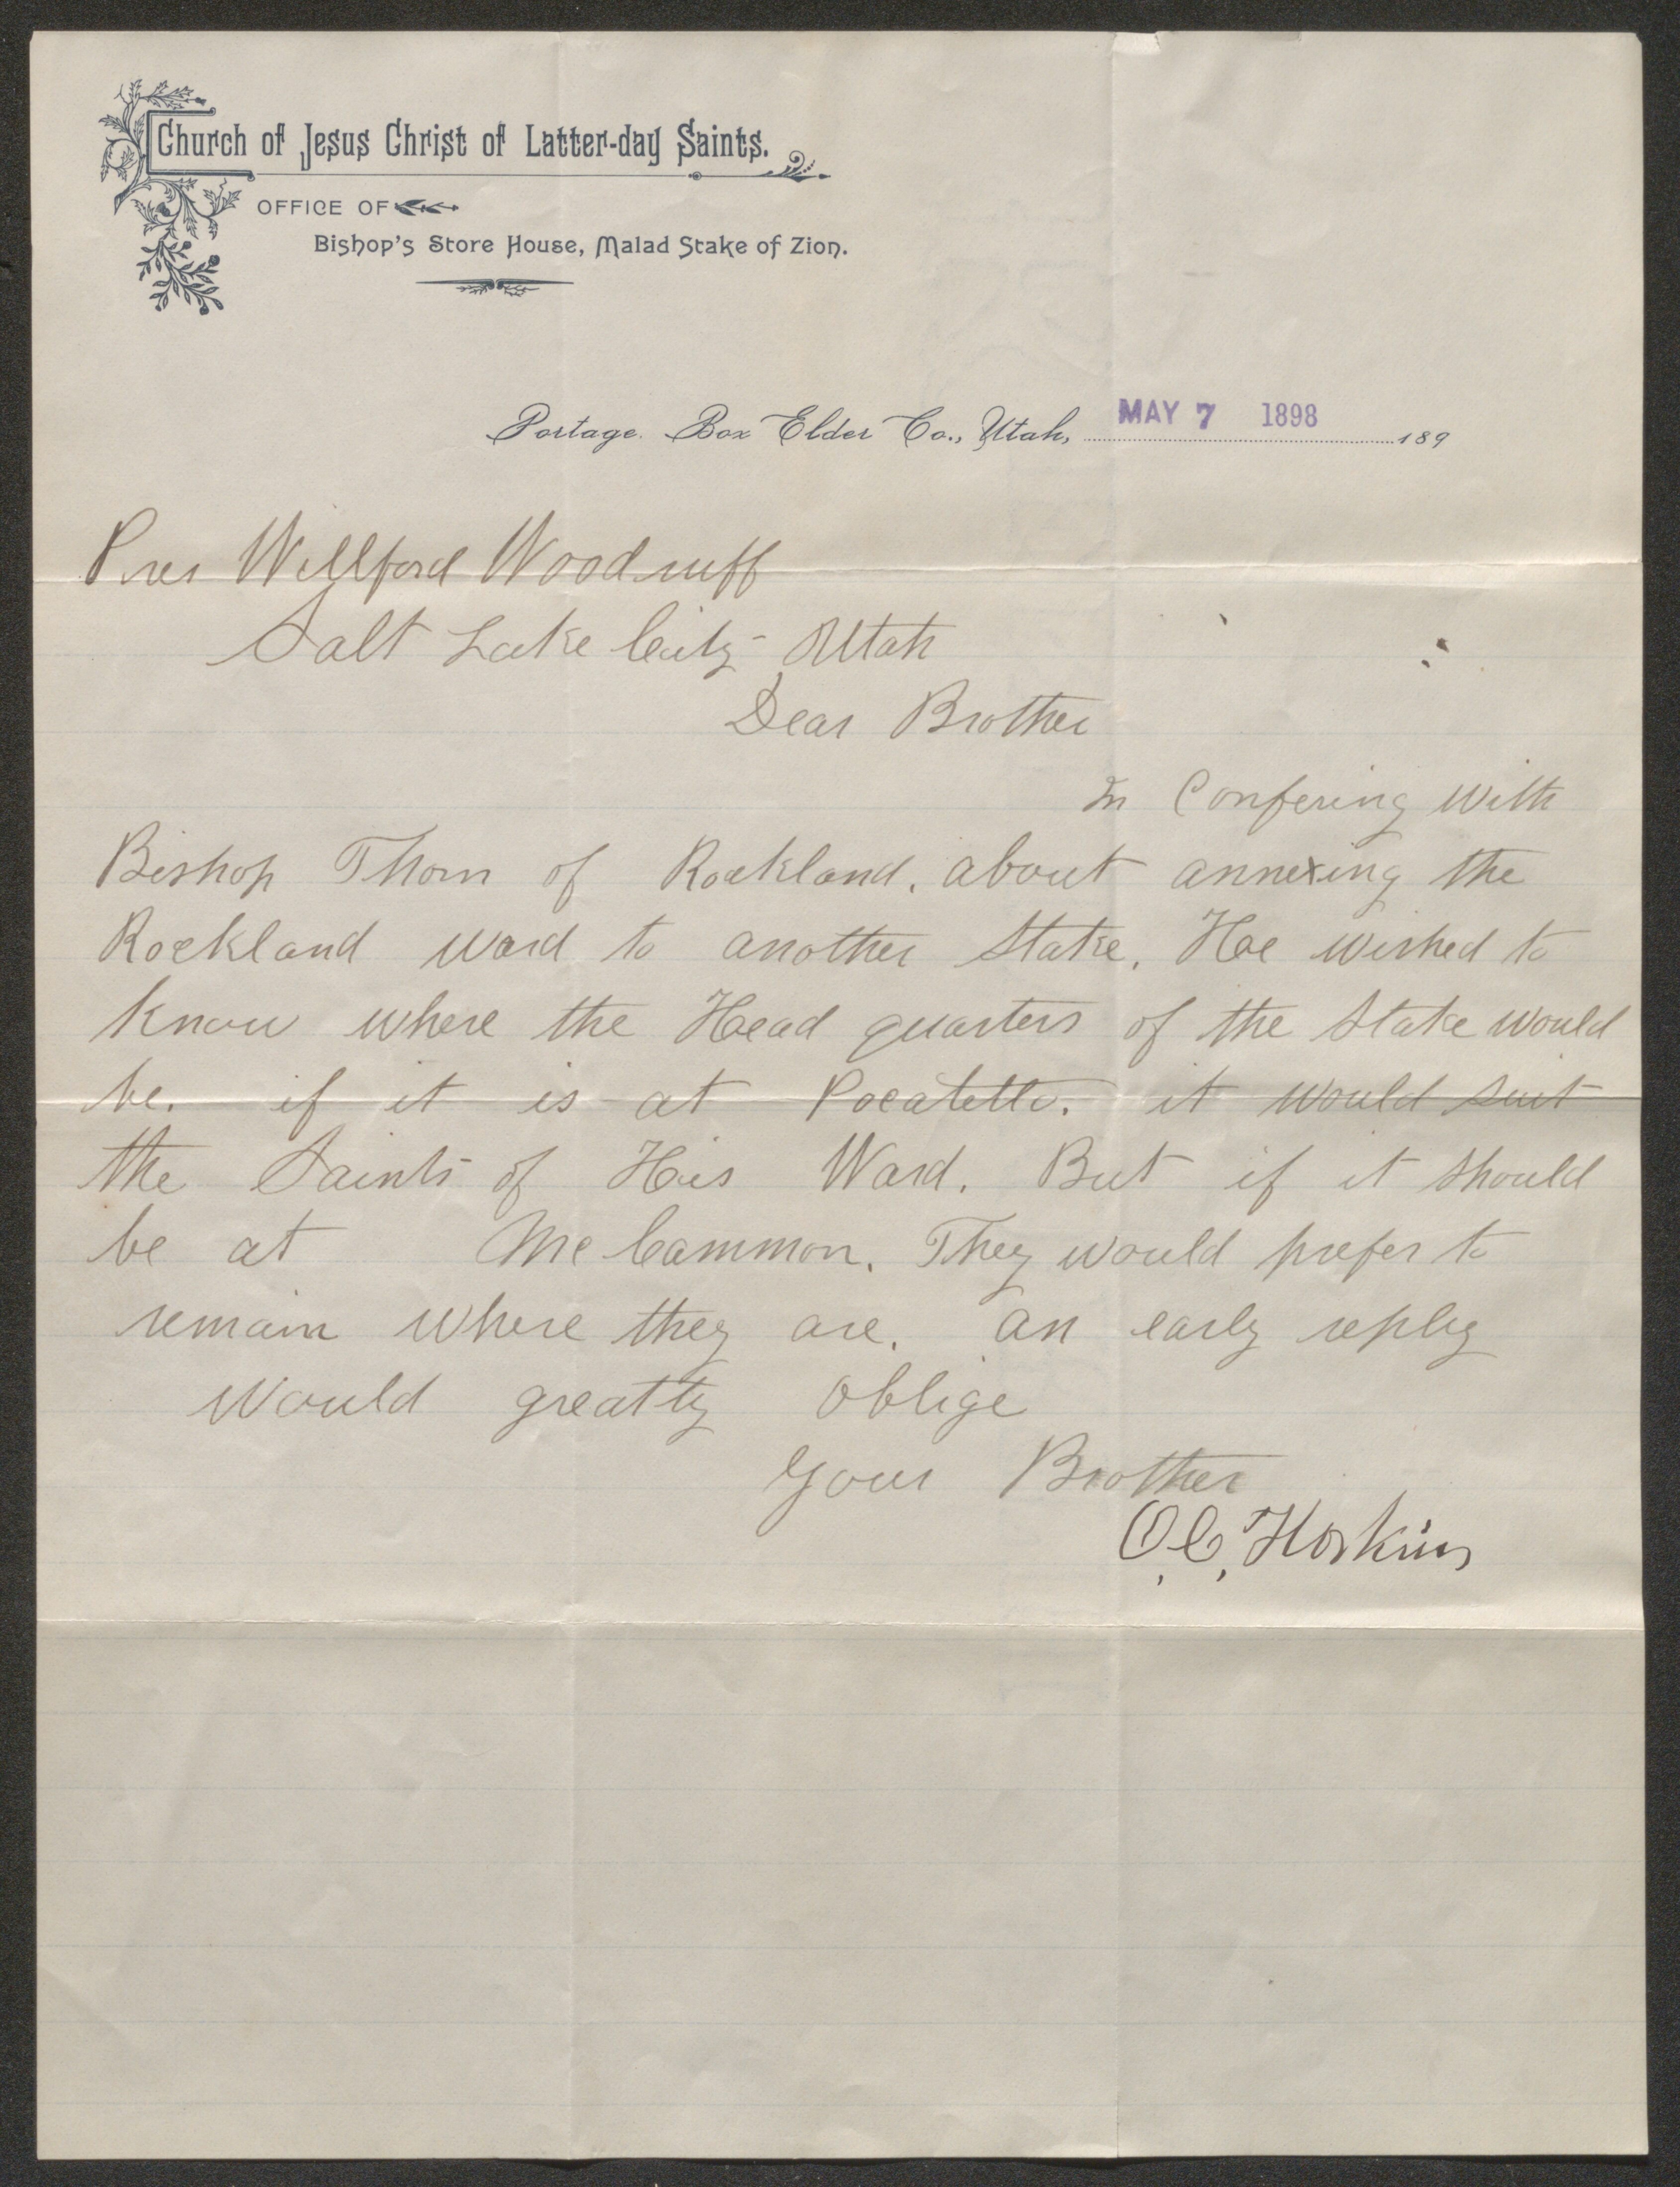 Church of Jesus Christ of Latter-day Saints.
OFFICE OF
Bishop's Store House, Malad Stake of Zion.
Portage. Box Elder Co., Utah, MAY 7 1898 189
Pres Willford Woodruff
Salt Lake City Utah
Dear Brother
In Confering with
Bishop Thorn of Rockland. about annexing the
Rockland ward to another Stake. He wished to
know where the Head quarters of the Stake would
be. if it is at Pocatello. it would suit
the Saints of His Ward. But if it should
be at McCammon. They would prefer to
remain where they are. an early reply
would greatly oblige
Your Brother
O.C. Hoskins